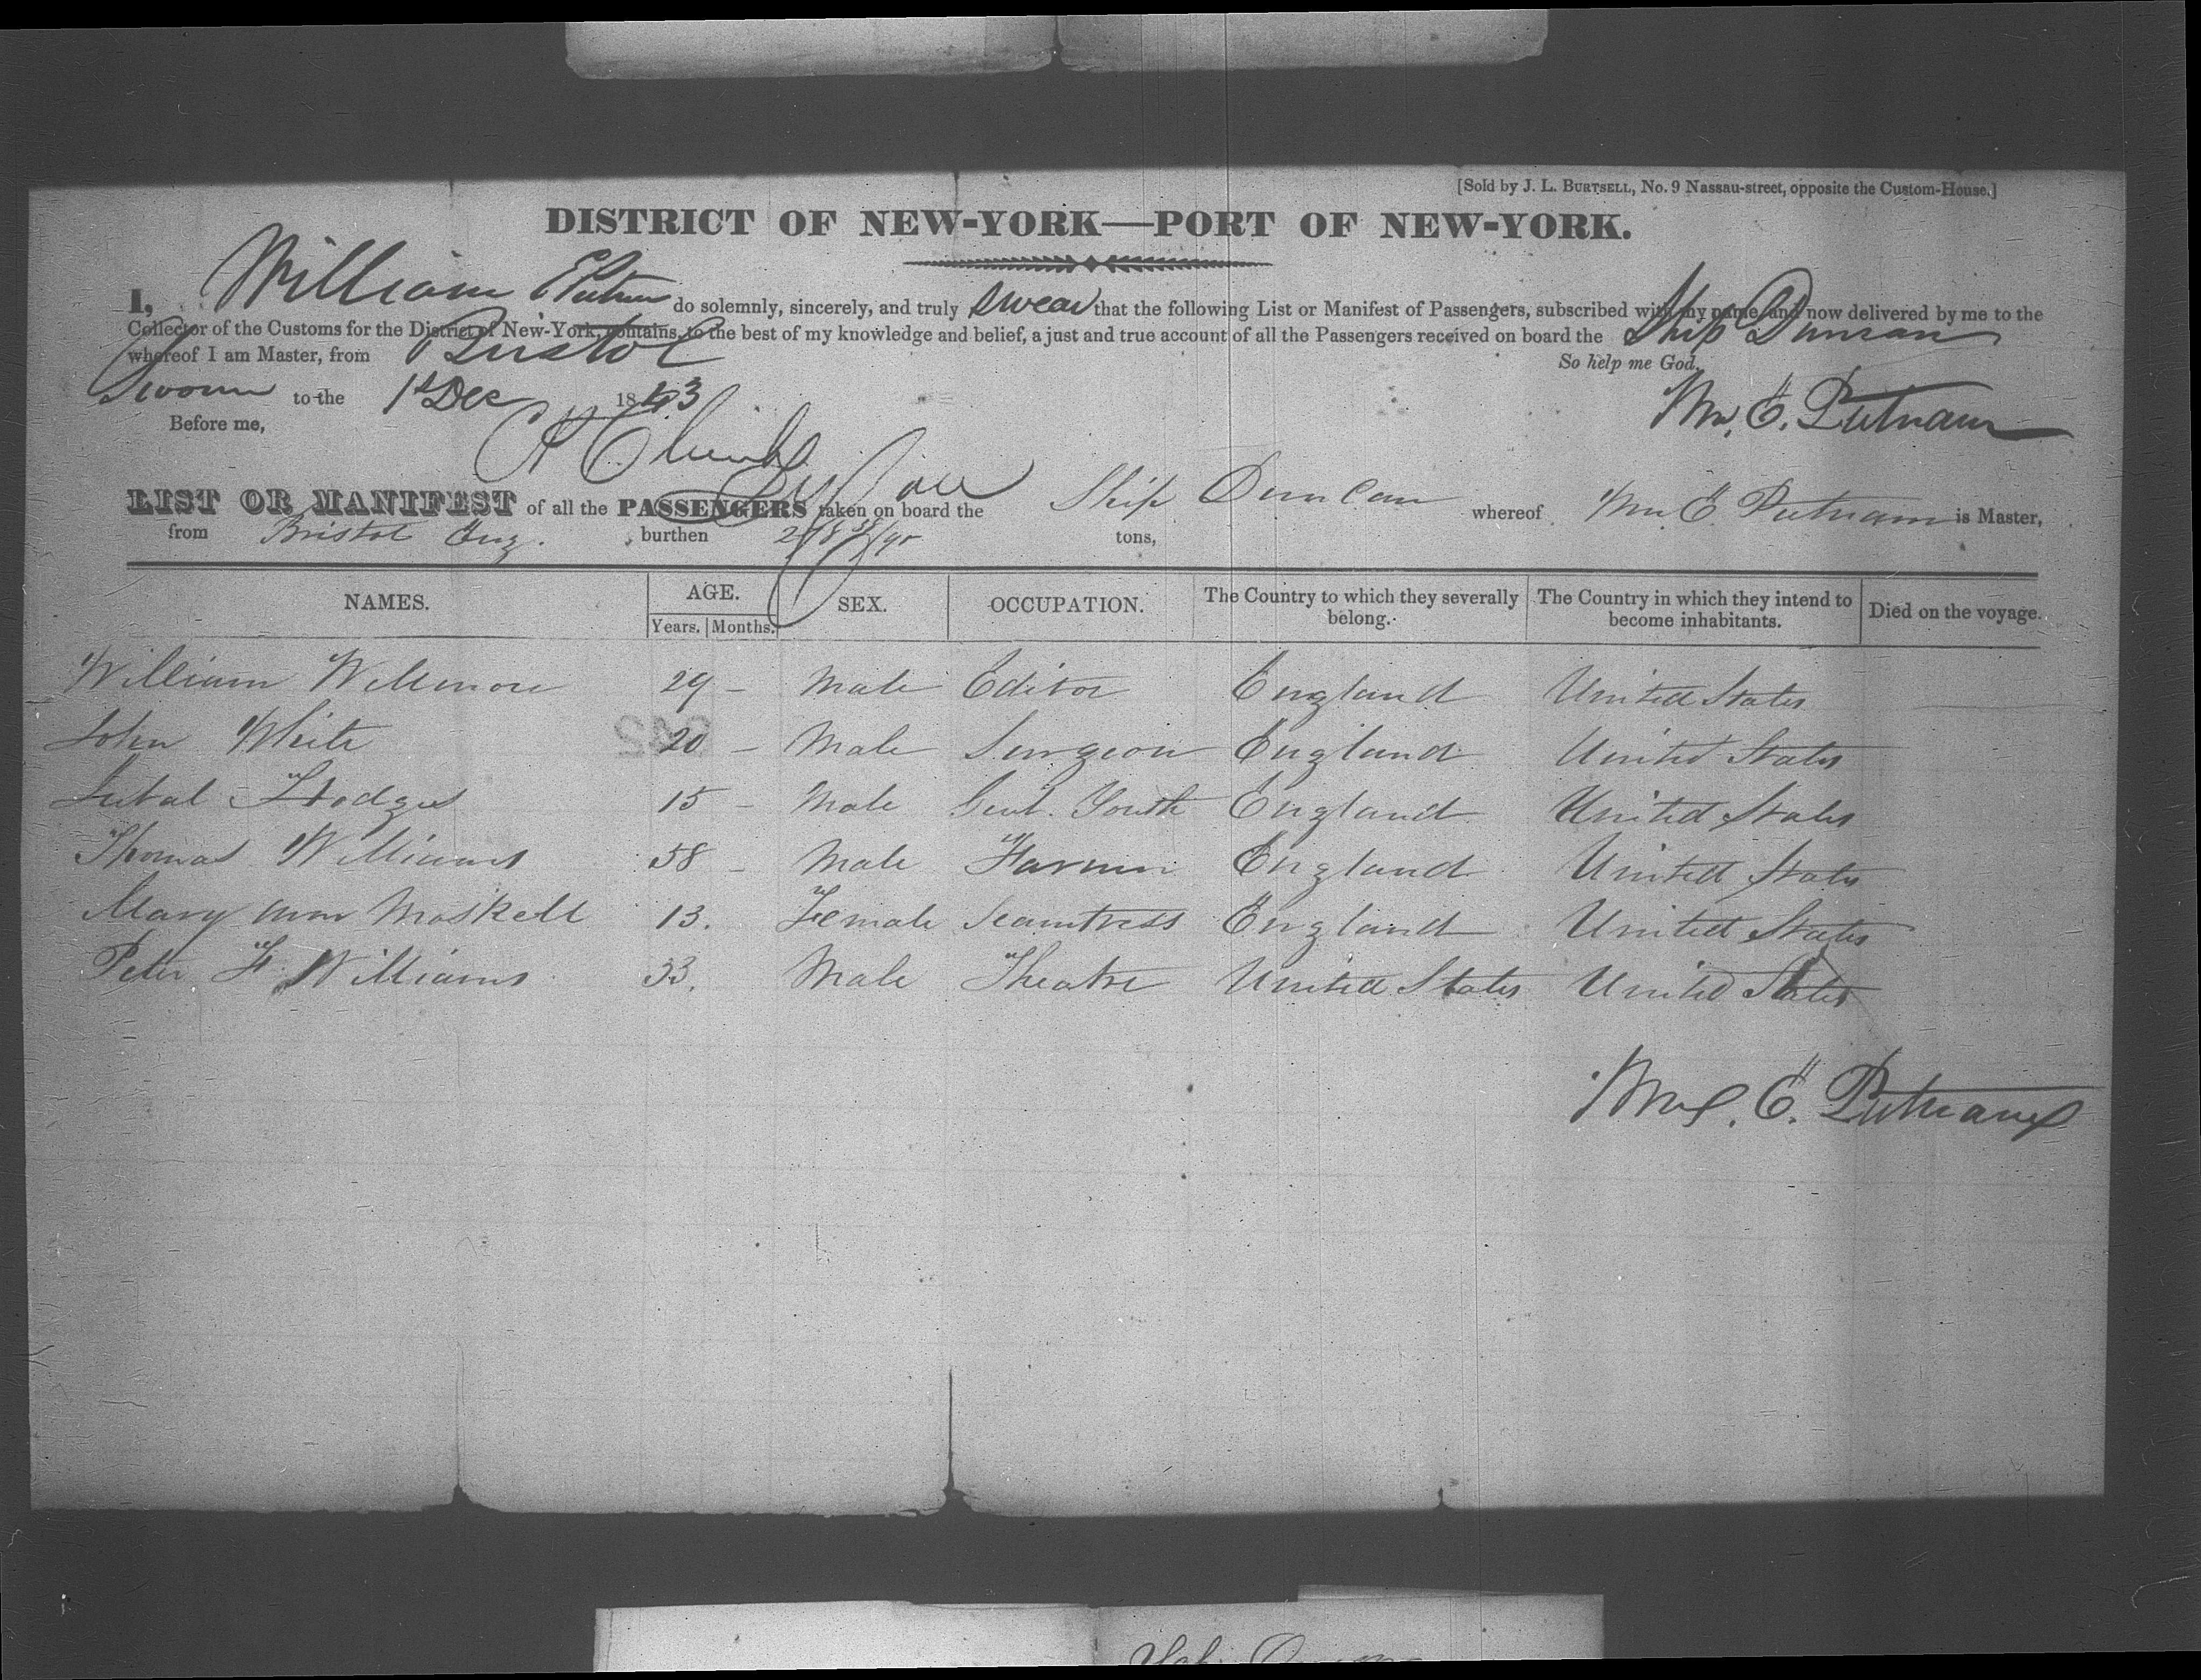 [Sold by J. L. BURTSELL, No. 9 Nassau-street, opposite the Custom-House.]
DISTRICT OF NEW-YORK—PORT OF NEW-YORK.
I, William E Putnam do solemnly, sincerely, and truly swear that the following List or Manifest of Passengers, subscribed with my name, and now delivered by me to the
Collector of the Customs for the District of New-York, contains, to the best of my knowledge and belief, a just and true account of all the Passengers received on board the Ship Duncan
whereof I am Master, from Bristol
So help me God.
Sworn to the 1st Dec 1843
Wm. E. Putnam
Before me,
LIST OR MANIFEST of all the PASSENGERS taken on board the Ship Duncan whereof Wm. E. Putnam is Master,
from Bristol Eng. burthen tons,
NAMES. AGE. SEX. OCCUPATION. The Country to which they severally belong. The Country in which they intend to become inhabitants. Died on the voyage.
Years. Months.
William 29 - Male Editor England United States
John White 20 - Male Surgeon England United States
Hodges 15 - Male Gent. Youth England United States
Thomas Williams 58 - Male Farmer England United States
Mary Ann Maskell 13. Female Seamtress England United States
Peter F. Williams 33. Male Theatre United States United States
Wm. E. Putnam